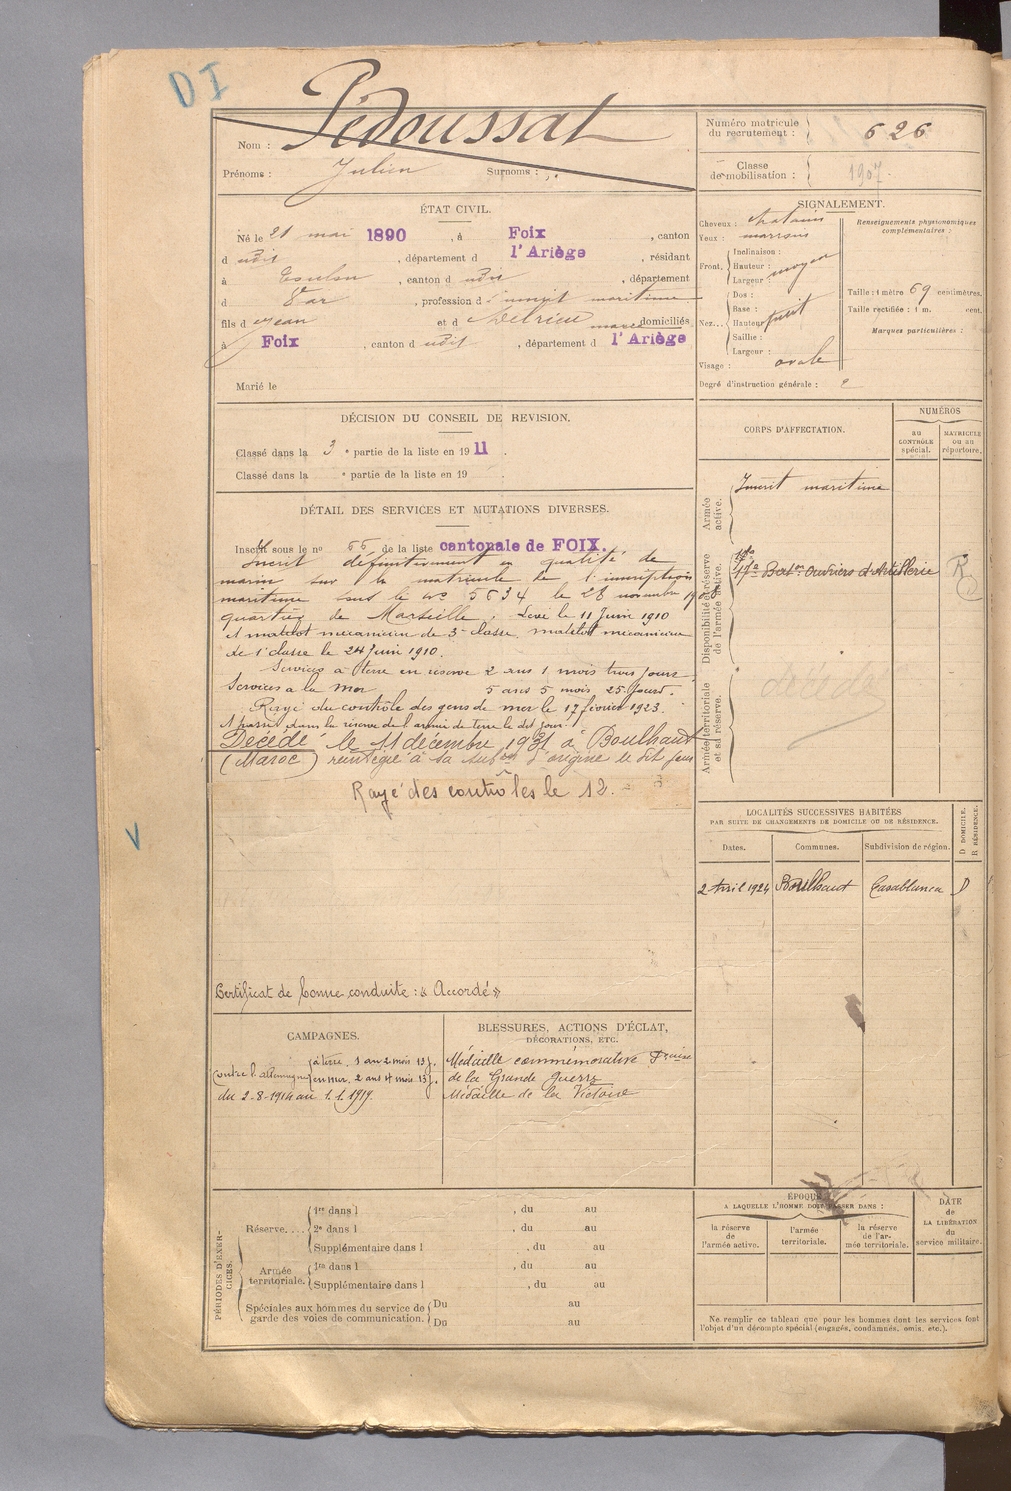 D I
Nom : Pédoussat
Prénoms : Julien Surnoms :
Numéro matricule
du recrutement : 626
Classe
de mobilisation : 1907
ÉTAT CIVIL.
Né le 21 mai 1890, à Foix, canton
d udit, département d l'Ariège, résidant
à Toulon, canton d udit, département
d Var, profession d'inscrit maritime
fils d Jean et d Delrieu domiciliés
à Foix, canton d udit, département d l'Ariège
Marié le
SIGNALEMENT.
Cheveux : chatains
Yeux : marrons
Front. Inclinaison :
Hauteur : moyen
Largeur :
Nez... Dos :
Base :
Hauteur petit
Saillie :
Largeur :
Visage : ovale
Renseignements physionomiques
complémentaires :
Taille : 1 mètre 69 centimètres.
Taille rectifiée : 1 m. cent.
Marques particulières :
Degré d'instruction générale : 2
DÉCISION DU CONSEIL DE REVISION.
Classé dans la 3e partie de la liste en 1911.
Classé dans la e partie de la liste en 19 .
DÉTAIL DES SERVICES ET MUTATIONS DIVERSES.
Inscrit sous le no 55 de la liste cantonale de FOIX.
Inscrit définitivement en qualité de
marin sur la matricule de l'inscription
maritime sous le No 5534 le 28 novembre
quartier de Marseille. Levé le 11 Juin 1910
et matelot mécanicien de 3e classe, matelot mécanicien
de 1e classe le 24 Juin 1910.
Services à terre en réserve 2 ans 1 mois trois jours.
Services à la mer 5 ans 5 mois 25 jours.
Rayé du contrôle des gens de mer le 17 février 1923.
A passé dans la réserve de l'armée de terre le dit jour.
Décédé le 11 décembre 1931 à Boulhaut
(Maroc) réintégré à sa subon d'origine le dit jour
Rayé des contrôles le 12.
V
Certificat de bonne conduite : « Accordé »
CORPS D'AFFECTATION.
NUMÉROS
au
CONTRÔLE
spécial.
MATRICULE
ou au
répertoire.
Armée
active.
Inscrit maritime
Disponibilité et réserve
de l'armée active.
17e Baton Ouvriers d'Artillerie
R
Armée territoriale
et sa réserve.
LOCALITÉS SUCCESSIVES HABITÉES
PAR SUITE DE CHANGEMENTS DE DOMICILE OU DE RÉSIDENCE.
Dates. Communes. Subdivision de région. D DOMICILE.
R RÉSIDENCE.
2 Avril 1924 Boulhaut Casablanca D
CAMPAGNES.
Contre l'Allemagne à terre, 1 an 2 mois 13 j.
en mer, 2 ans 4 mois 13 j.
du 2-8-1914 au 1.1.1919.
BLESSURES, ACTIONS D'ÉCLAT,
DÉCORATIONS, ETC.
Médaille commémorative Fçaise
de la Grande Guerre
Médaille de la Victoire
PÉRIODES D'EXERCICES.
Réserve.... 1re dans l , du au
2e dans l , du au
Supplémentaire dans l , du au
Armée
territoriale. 1re dans l , du au
Supplémentaire dans l , du au
Spéciales aux hommes du service de
garde des voies de communication. Du au
Du au
ÉPOQUE
A LAQUELLE L'HOMME DOIT PASSER DANS :
la réserve
de
l'armée active.
l'armée
territoriale.
la réserve
de l'ar-
mée territoriale.
DATE
de
LA LIBÉRATION
du
service militaire.
Ne remplir ce tableau que pour les hommes dont les services font
l'objet d'un décompte spécial (engagés, condamnés, omis, etc.).